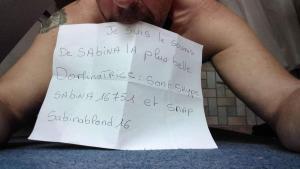 Je suis le soumis
DE SABINA LA plus belle
DOMINATRICE : Son SKYPE
SABINA 16751 et SNAP
Sabinablond 16